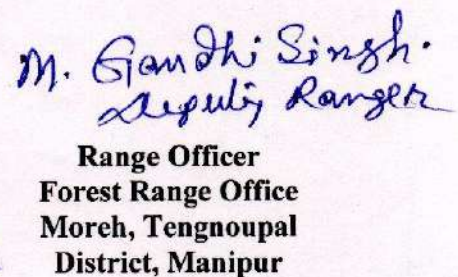 M. Gandhi Singh.
Deputy Ranger
Range Officer
Forest Range Office
Moreh, Tengnoupal
District, Manipur